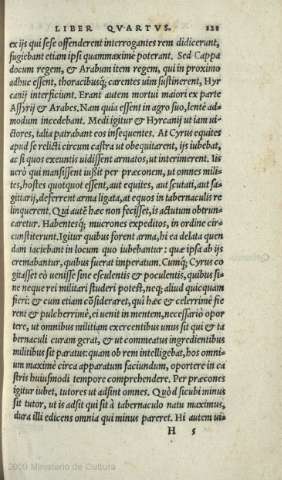 LIBER QVARTVS. 121
ex ijs qui sese offenderent interrogantes rem didicerant,
fugiebant etiam ipsi quammaximè poterant. Sed Cappa
docum regem, & Arabum item regem, qui in proximo
adhuc essent, thoracibusq́; carentes uim sustinerent, Hyr
canij interficiunt. Erant autem mortui maiori ex parte
Assyrij & Arabes. Nam quia essent in agro suo, lentè ad=
modum incedebant. Medi igitur & Hyrcanij ut iam ui=
ctores, talia patrabant eos insequentes. At Cyrus equites
apud se relicti circum castra ut obequitarent, ijs iubebat,
ac si quos exeuntis uidissent armatos, ut interimerent. Iis
uerò qui mansissent iußit per præconem, ut omnes mili=
tes, hostes quotquot essent, aut equites, aut scutati, aut sa=
gittarij, deferrent arma ligata, at equos in tabernaculis re
linquerent. Qui autē hæc non fecisset, is actutum obtrun=
caretur. Habentesq́; mucrones expeditos, in ordine cir=
cunstiterunt. Igitur quibus forent arma, hi ea delata quen
dam iaciebant in locum quo iubebantur: quæ ipsa ab ijs
cremabantur, quibus fuerat imperatum. Cumq́; Cyrus co
gitasset eò uenisse sine esculentis & poculentis, quibus si=
ne neque rei militari studeri potest, neq; aliud quicquam
fieri: & cum etiam cōsideraret, qui hæc & celerrimè fie
rent & pulcherrimè, ei uenit in mentem, necessariò opor
tere, ut omnibus militiam exercentibus unus sit qui & ta
bernaculi curam gerat, & ut commeatus ingredientibus
militibus sit paratus: quam ob rem intelligebat, hos omni=
um maximè circa apparatum faciundum, oportere in ca
stris huiusmodi tempore comprehendere. Per præcones
igitur iubet, tutores ut adsint omnes. Quòd sicubi minus
sit tutor, ut is adsit qui sit à tabernaculo natu maximus,
dura illi edicens omnia qui minus pareret. Hi autem ui=
H 5
2009 Ministerio de Cultura